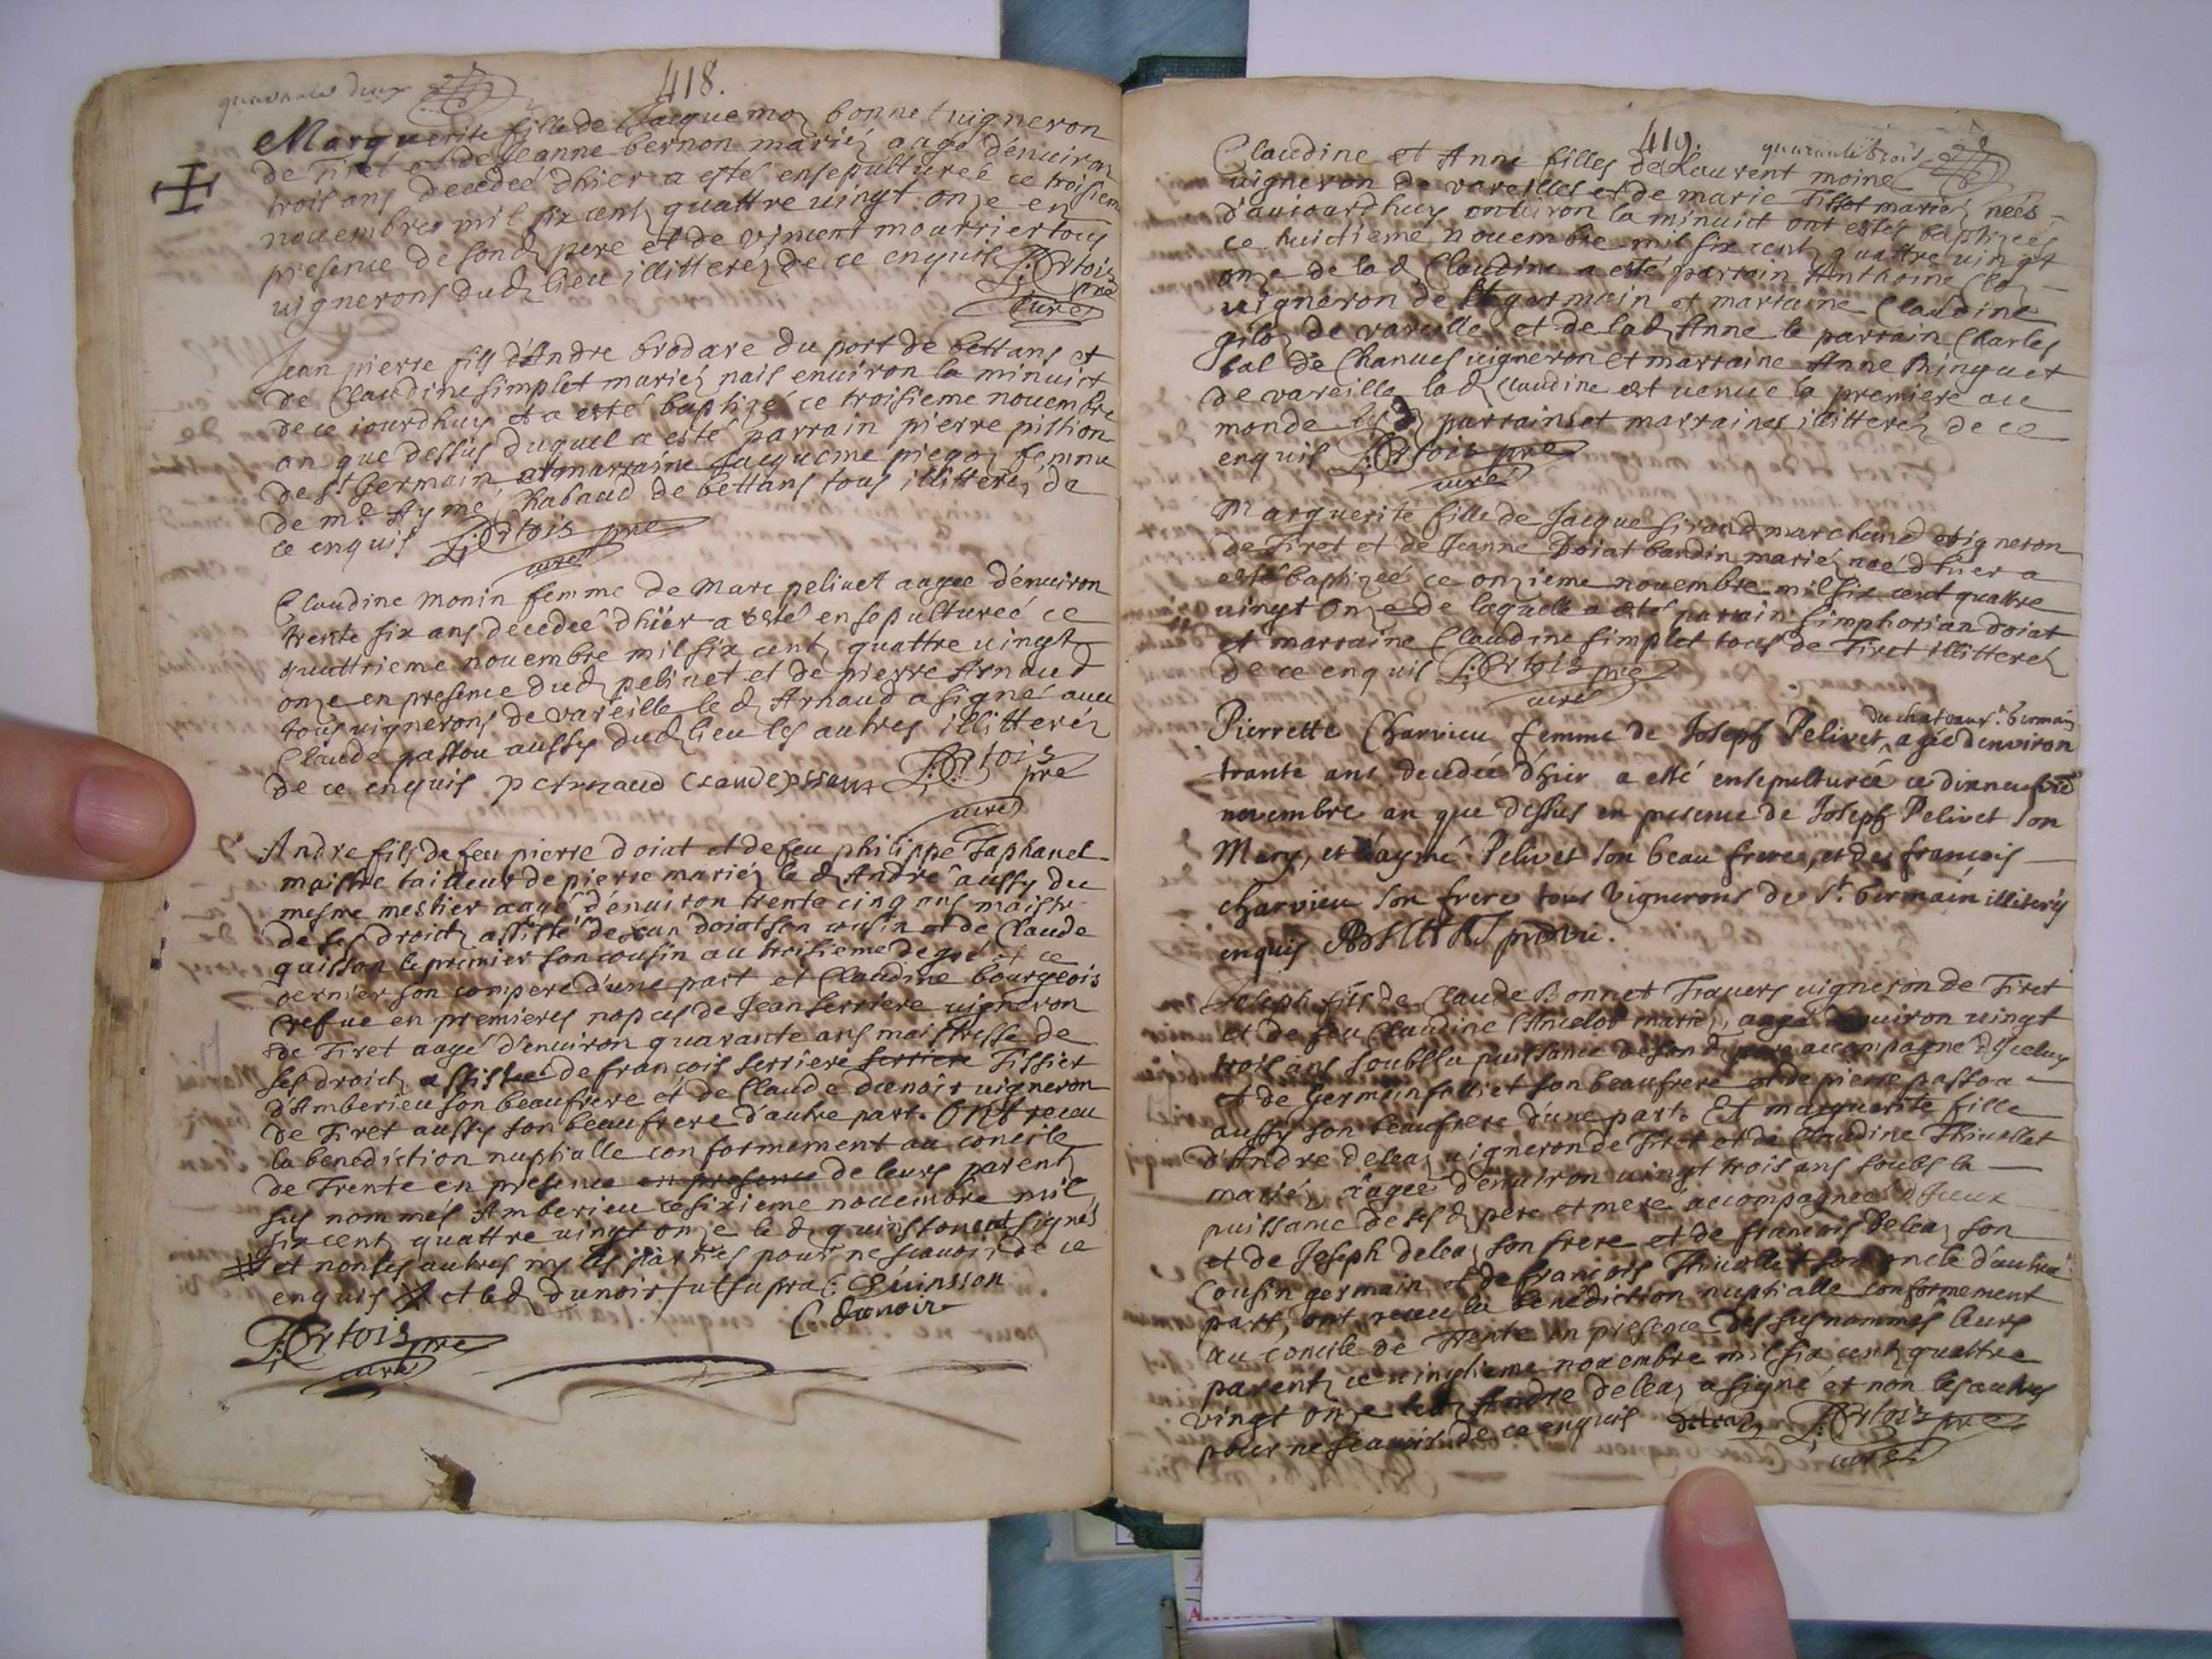 quarante deux
418.
Marguerite fille de Jacquemoz bonnet uigneron
de Tiret et de Jeanne bernon mariéz aagé dénuiron
trois ans decedeé dhier a estéé ensepultureé ce troisieme
nouembre mil six centz quattre uingt onze en
presence de sond pere et de vincent mourrier tous
uignerons dud lieu illitteréz de ce enquis Artois
pre
curé
Jean pierre fils d'Andre brodare du port de bettans et
de Claudine simplet mariéz nais enuiron la minuict
de ce iourdhuy et a esté baptizé ce troisieme nouembre
an que dessus duquel a esté parrain pierre pission
de st Germain et marraine Jacqueme piegoz femme
de me Aymé Rabaud de bettans tous illitteréz de
ce enquis Artois pre
curé
Claudine monin femme de Marc peliuet aagee dénuiron
trente six ans decedeé dhier a esté ensepultureé ce
quattrieme nouembre mil six centz quattre uingt
onze en presence dud peliuet et de pierre Arnaud
tous uignerons de vareille le d Arnaud a signé auec
Claude passou aussy dud lieu les autres illitteréz
de ce enquis p Arnaud Claude passou Artois
pre
curé
Andre fils de feu pierre doiat et de feu philippe Taphanel
maistre tailleur de pierre mariéz le d André aussy du
mesme mestier aagé dénuiron trente cinq ans maistre
de ses droictz assisté de Jean doiat son cousin et de Claude
quisson le premier son cousin au troisieme degré et ce
dernier son compere d'une part et Claudine bourgeois
vefue en premieres nopces de Jean serriere uigneron
de Tiret aagé d'enuiron quarante ans maistresse de
ses droictz assistee de francois serriere serriere Tissier
d'Amberieu son beaufrere et de Claude dunoir uigneron
de Tiret aussy son beaufrere d'autre part. Ont receu
la benediction nuptialle conformement au concile
de Trente en presence en presence de leurs parentz
sus nommés Amberieu ce sixieme nouembre mil
six centz quattre uingt onze le d quinsson ont signés
et non les autres ny les parties pour ne scauoir de ce
enquis et led dunoir ut supra: Quinsson
C dunoir
Artois pre
curé
419.
quarante trois
Claudine et Anne filles de Laurent moine
uigneron de vareilles et de marie Tissot mariéz neés
d'auiourdhuy enuiron la minuict ont estés baptizeés
ce huictieme nouembre mil six centz quattre uingt
onze de la d Claudine a esté parrain Anthoine Cloz
uigneron de st germain et marraine Claudine
giloz de vareille et de lad Anne le parrain Charles
bal de Chanues uigneron et marraine Anne Ringuet
de vareille la d claudine est uenue la premiere au
monde les d parrains et marraines illitteréz de ce
enquis Artois pre
curé
Marguerite fille de Jacque sirand marchand uigneron
de Tiret et de Jeanne Doiat bardin mariéz neé dhier a
esté baptizeé ce onzieme nouembre mil six cent quattre
uingt onze de laquelle a esté parrain simphorian doiat
et marraine Claudine simplet tous de Tiret illitteréz
de ce enquis Artois pre
curé
du chateau st Germain
Pierrette Charvieu femme de Joseph Pelivet agée denviron
trante ans decedée d'hier a esté ensepulturée ce dixneufvie
novembre an que dessus en presence de Joseph Pelivet son
Mary, et d'aymé Pelivet son beau frere, et de francois
charvieu son frere tous vignerons de St Germain illiterés
enquis
Joseph fils de Claude Bonnet Trauers uigneron de Tiret
et de feu Claudine Lancelot mariéz, aagé dénuiron uingt
trois ans soubs la puissance de son d pere accompagné d'Iceluy
et de Germain folliet son beaufrere et de pierre passou
aussy son beaufrere d'une part. Et marguerite fille
d'Andre deleaz uigneron de Tiret et de Claudine Thiuollet
mariéz aageé d'enuiron uingt trois ans soubs la
puissance de ses d pere et mere accompagneé d'Iceux
et de Joseph deleaz son frere et de francois deleaz son
Cousin germain et de francois Thiuollet son oncle d'autre
part, ont receu la benediction nuptialle conformement
au concile de Trente en presence des susnommés leurs
parentz ce uingtieme nouembre mil six centz quattre
vingt onze led Andre deleaz a signé et non les autres
pour ne scauoir de ce enquis deleaz Artois pre
curé